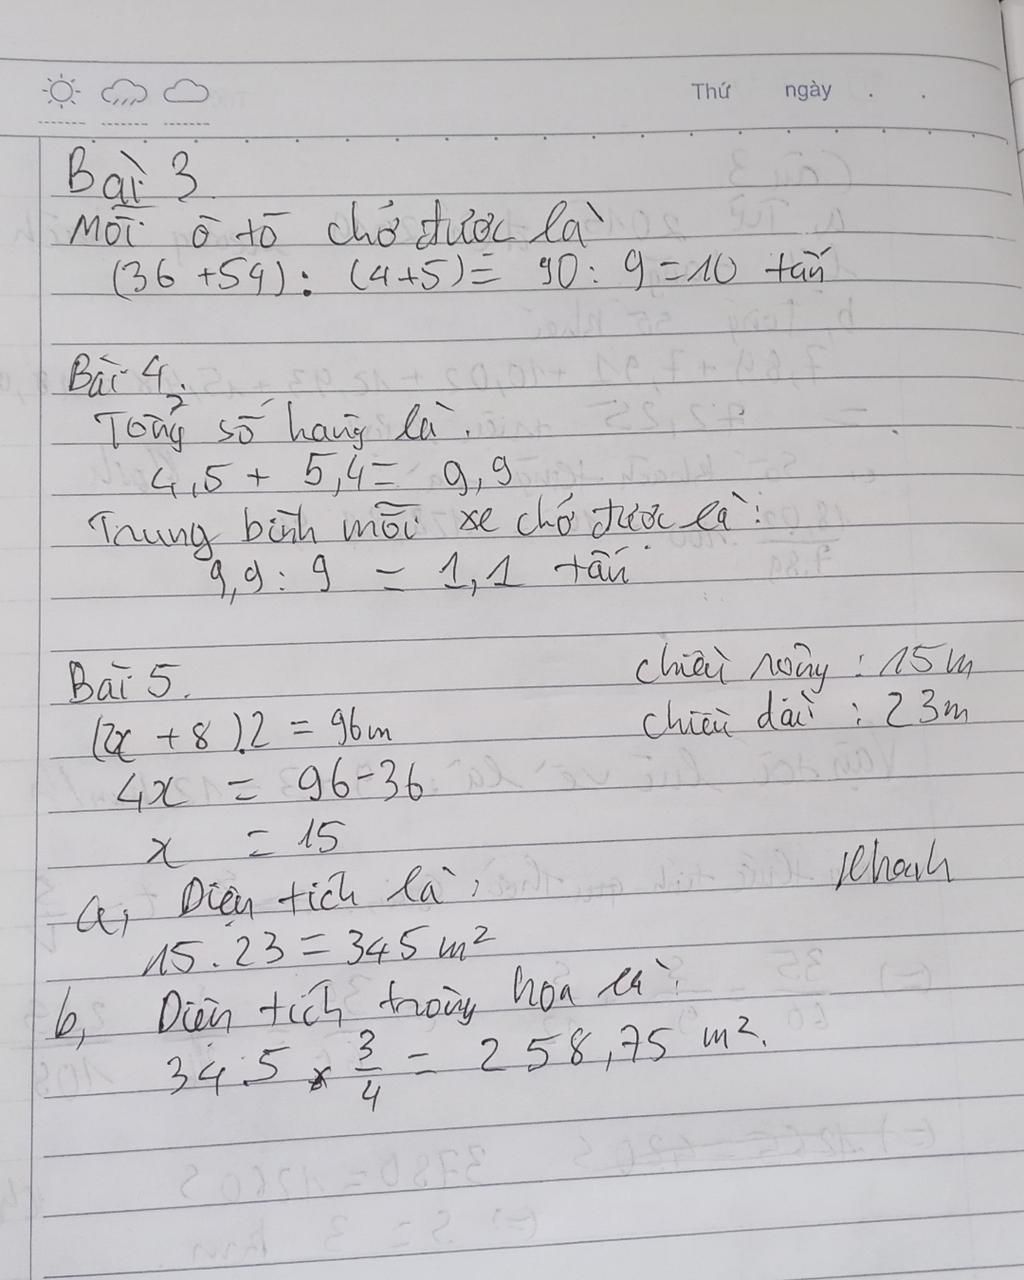 Thứ ngày . .
Bài 3
Mỗi ô tô chở được là
(36 +54) : (4+5) = 90 : 9 = 10 tấn
Bài 4:
Tổng số hàng là.
4,5 + 5,4 = 9,9
Trung bình mỗi xe chở được là:
9,9 : 9 = 1,1 tấn
Bài 5.
chiều rộng : 15m
(2x + 8).2 = 96m
chiều dài : 23m
4x = 96-36
x = 15
Khanh
a, Diện tích là:
15.23 = 345 m²
b, Diện tích trồng hoa là:
345 x 3/4 = 258,75 m².